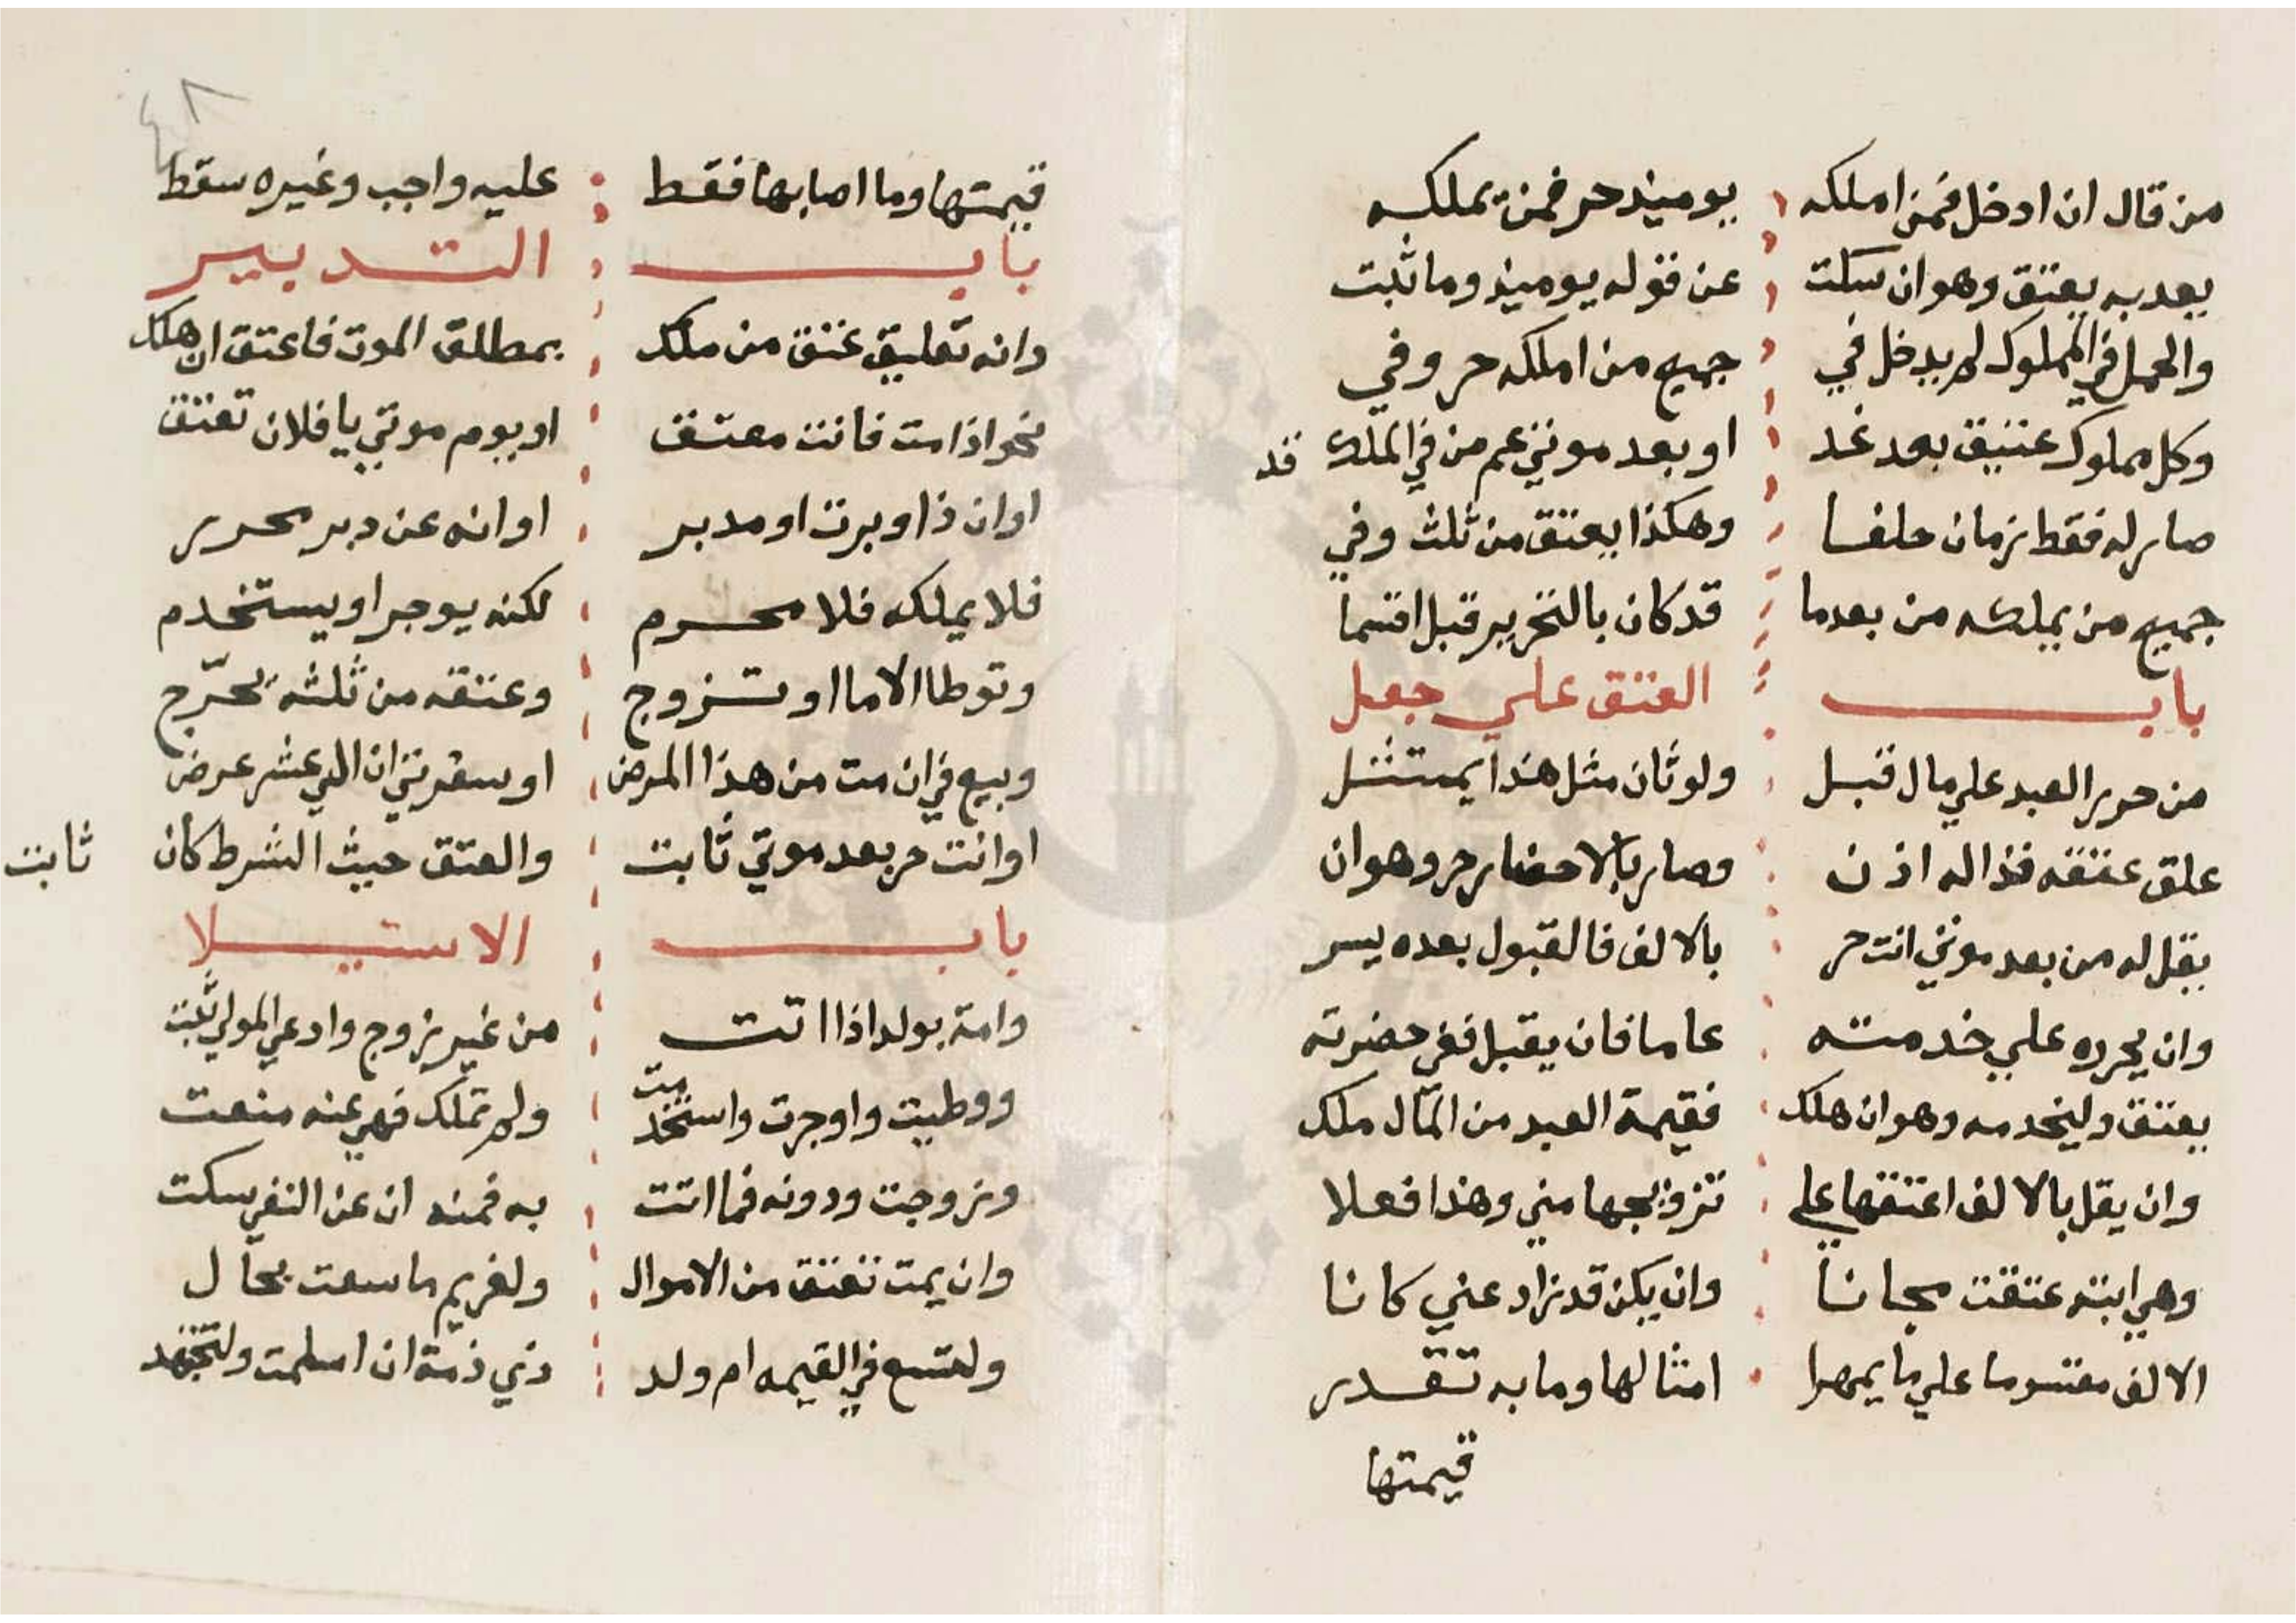 من قال ان ادخل فمن املكه يوميذ حر فمن يملكه
بعد به يعتق وهو ان سكت عن قوله يوميذ وما ثبت
والحمل في المملوك لم يدخل في جميع من املكه حر وفي
وكل مملوك عتيق بعد غد او بعد موتي عم من في الملك قد
صار له فقط زمان حلفا وهكذا يعتق من ثلث وفي
جميع من يملكه من بعدما قد كان بالتحرير قبل اقتما
باب العتق علي جعل
من حرر العبد علي مال قبل ولو ثان مثل هذا يمتثل
علق عتقه فذا له اذن وصار بالاحضار حر وهو ان
يقل له من بعد موتي انت حر بالالف فالقبول بعده يسر
وان يحرره علي خدمته عاما فان يقبل ففي حضرته
يعتق وليخدمه وهو ان هلك فقيمة العبد من المال ملك
وان يقل بالالف اعتقها علي تزويجها مني وهذا فعلا
وهي ابته عتقت مجانا وان يكن قد زاد عني كانا
الالف مقسوما علي ما يمهرا امثالها وما به تقدر
قيمتها
قيمتها وما اصابها فقط عليه واجب وغيره سقط
باب التدبير
وانه تعليق عتق من ملك بمطلق الموت فاعتق ان هلك
نحو اذا مت فانت معتق او يوم موتي يا فلان تعتق
او ان ذا وبرت او مدبر او انه عن دبر محرر
فلا يملك فلا محرم لكنه يوجر او يستخدم
وتوطا الاما او تزوج وعتقه من ثلثه يخرج
وبيع في ان مت من هذا المرض او سفرتي ان الي عشر عرض
او انت حر بعد موتي ثابت والعتق حيث الشرط كان ثابت
باب الاستيلا
وامة بولد اذا اتت من غير زوج وادعي المولي ثبت
ووطيت واوجرت واستخدمت ولم تملك فهي عنه منعت
وزوجت ودونه فما اتت به فمنه ان عن النفي سكت
وان يمت تعتق من الاموال ولغريم ما سعت بحال
ولتسع في القيمه ام ولد ذي ذمة ان اسلمت ولتجهد